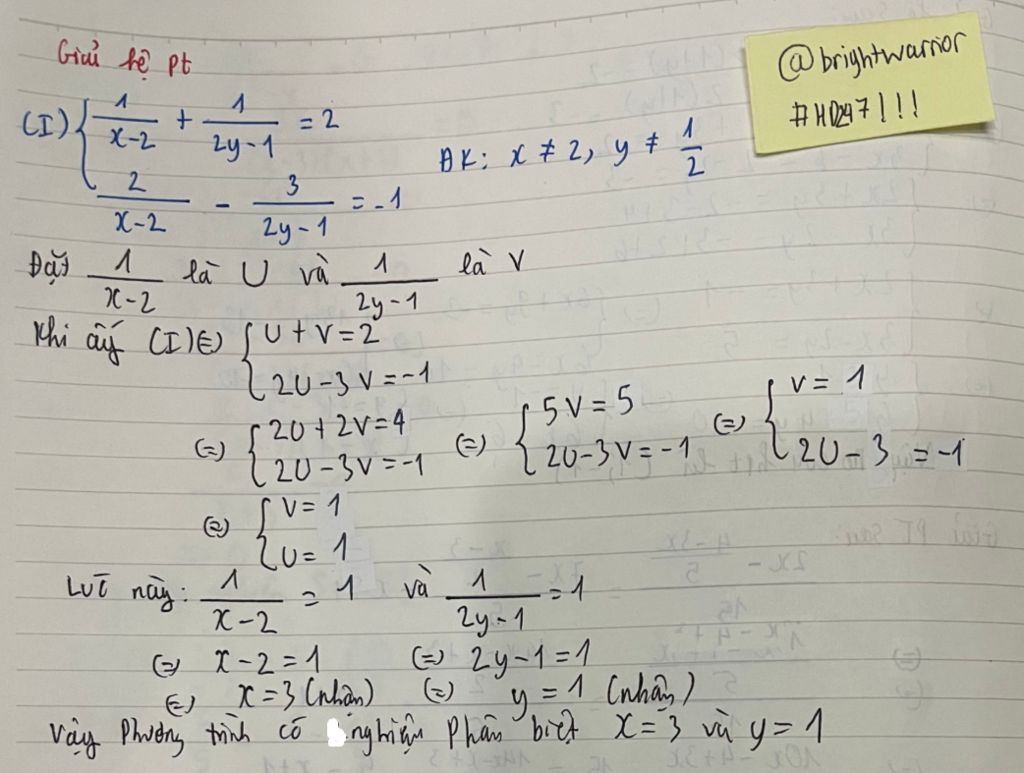 Giải hệ pt
(I) { 1/(x-2) + 1/(2y-1) = 2
2/(x-2) - 3/(2y-1) = -1
ĐK: x ≠ 2, y ≠ 1/2
@brightwarrior
#HD247!!!
Đặt 1/(x-2) là U và 1/(2y-1) là V
Khi ấy (I) (=) { U + V = 2
2U - 3V = -1
(=) { 2U + 2V = 4
2U - 3V = -1
(=) { 5V = 5
2U - 3V = -1
(=) { V = 1
2U - 3 = -1
(=) { V = 1
U = 1
Lúc này: 1/(x-2) = 1 và 1/(2y-1) = 1
(=) x - 2 = 1 (=) 2y - 1 = 1
(=) x = 3 (nhận) (=) y = 1 (nhận)
Vậy Phương trình có nghiệm Phân biệt x = 3 và y = 1